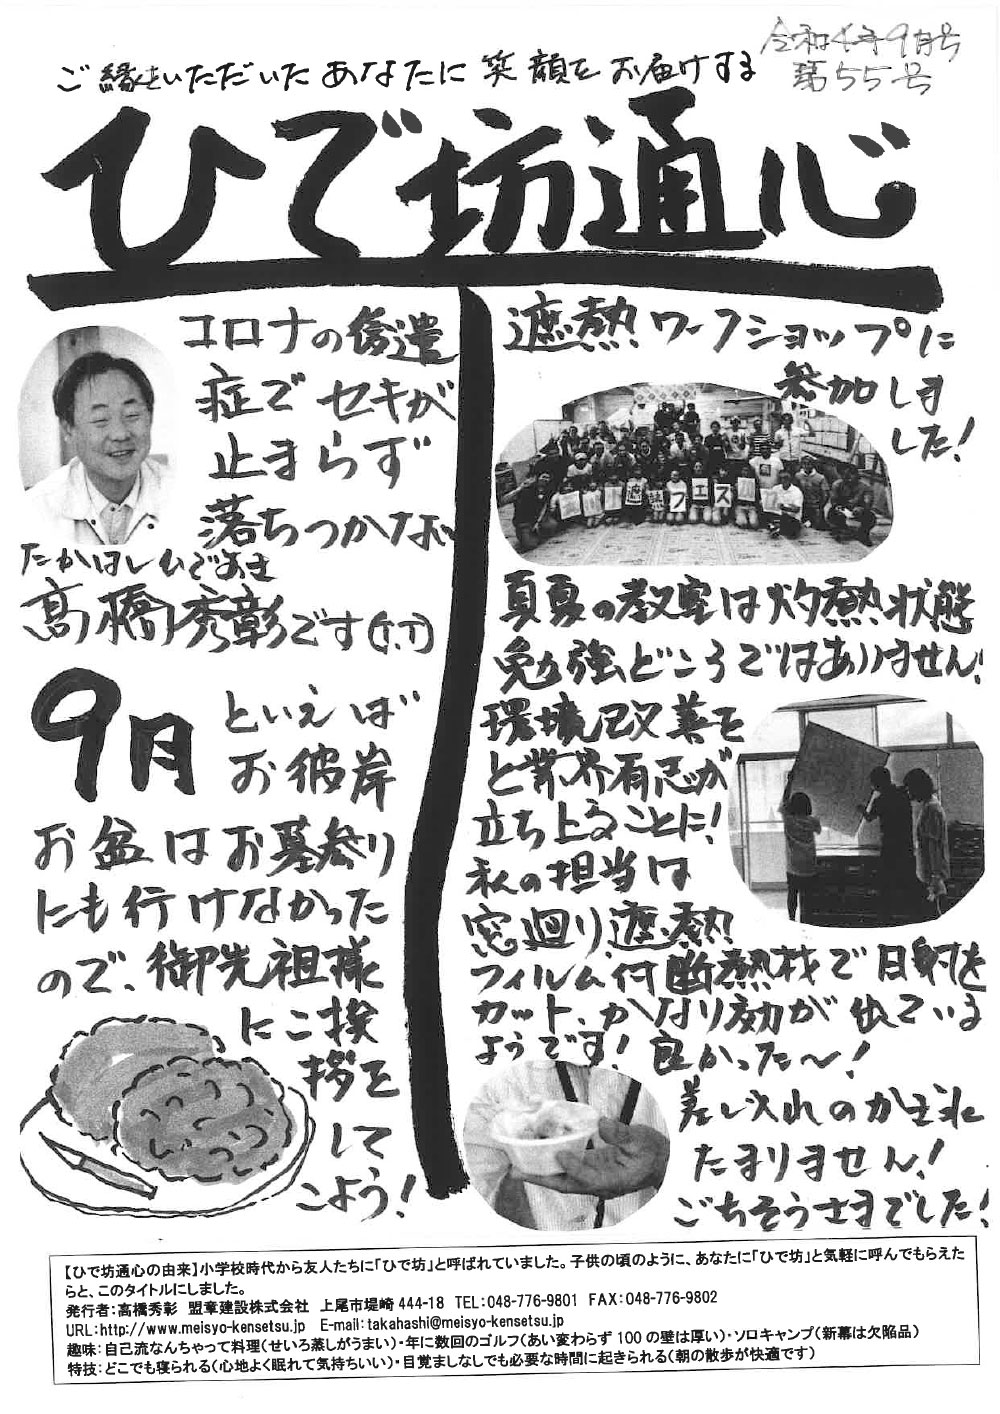 令和4年9月号
第55号
ご縁をいただいたあなたに笑顔をお届けする
ひで坊通心
コロナの後遺
症でセキが
止まらず
落ちつかない
たかはしひであき
髙橋秀彰です(T.T)
9月といえば
お彼岸
お盆はお墓参り
にも行けなかった
ので、御先祖様
にご挨
拶を
して
こよう!
遮熱ワークショップに
参加しま
した!
遮熱フェス
真夏の教室は灼熱状態
勉強どころではありません!
環境改善を
と業界有志が
立ち上ることに!
私の担当は
窓廻り、遮熱
フィルム付断熱材で日射を
カット、かなり効が出ている
ようです!良かった〜!
差し入れのかき氷
たまりません!
ごちそうさまでした!
【ひで坊通心の由来】小学校時代から友人たちに「ひで坊」と呼ばれていました。子供の頃のように、あなたに「ひで坊」と気軽に呼んでもらえた
らと、このタイトルにしました。
発行者:髙橋秀彰 盟章建設株式会社 上尾市堤崎444-18 TEL:048-776-9801 FAX:048-776-9802
URL:http://www.meisyo-kensetsu.jp E-mail:takahashi@meisyo-kensetsu.jp
趣味:自己流なんちゃって料理(せいろ蒸しがうまい)・年に数回のゴルフ(あい変わらず100の壁は厚い)・ソロキャンプ(新幕は欠陥品)
特技:どこでも寝られる(心地よく眠れて気持ちいい)・目覚ましなしでも必要な時間に起きられる(朝の散歩が快適です)